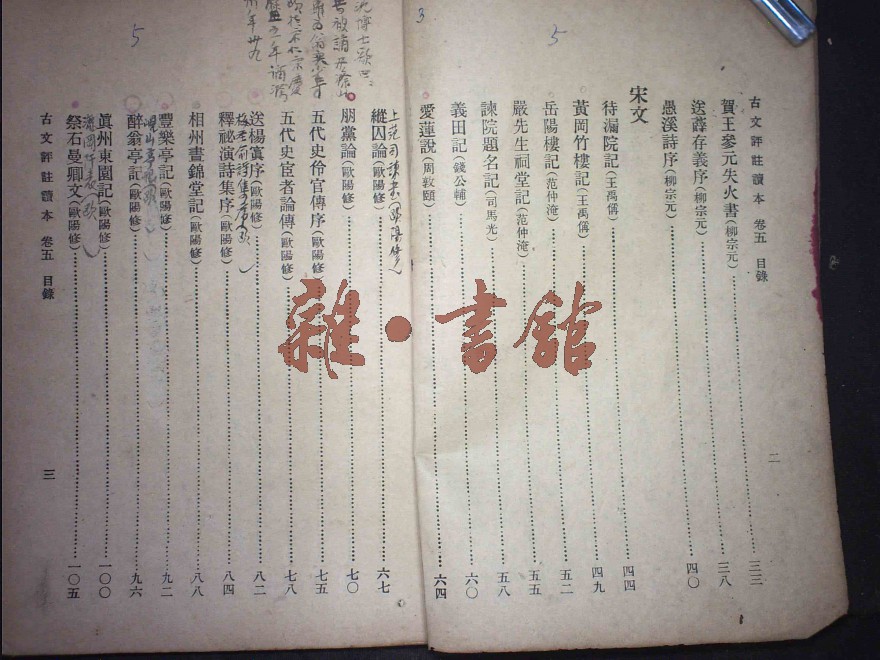 古文評註讀本 卷五 目錄
二
賀王參元失火書(柳宗元)……三三
送薛存義序(柳宗元)……三八
愚溪詩序(柳宗元)……四〇
宋文
待漏院記(王禹偁)……四四
黃岡竹樓記(王禹偁)……四九
岳陽樓記(范仲淹)……五二
嚴先生祠堂記(范仲淹)……五五
諫院題名記(司馬光)……五八
義田記(錢公輔)……六〇
愛蓮說(周敦頤)……六四
5
3
上范司諫書(歐陽修)
縱囚論(歐陽修)……六七
朋黨論(歐陽修)……七〇
五代史伶官傳序(歐陽修)……七五
五代史宦者論傳(歐陽修)……七八
送楊寘序(歐陽修)……八二
釋祕演詩集序(歐陽修)……八四
相州晝錦堂記(歐陽修)……八八
豐樂亭記(歐陽修)……九二
醉翁亭記(歐陽修)……九六
真州東園記(歐陽修)……一〇〇
祭石曼卿文(歐陽修)……一〇五
古文評註讀本 卷五 目錄
三
5
雜·書館